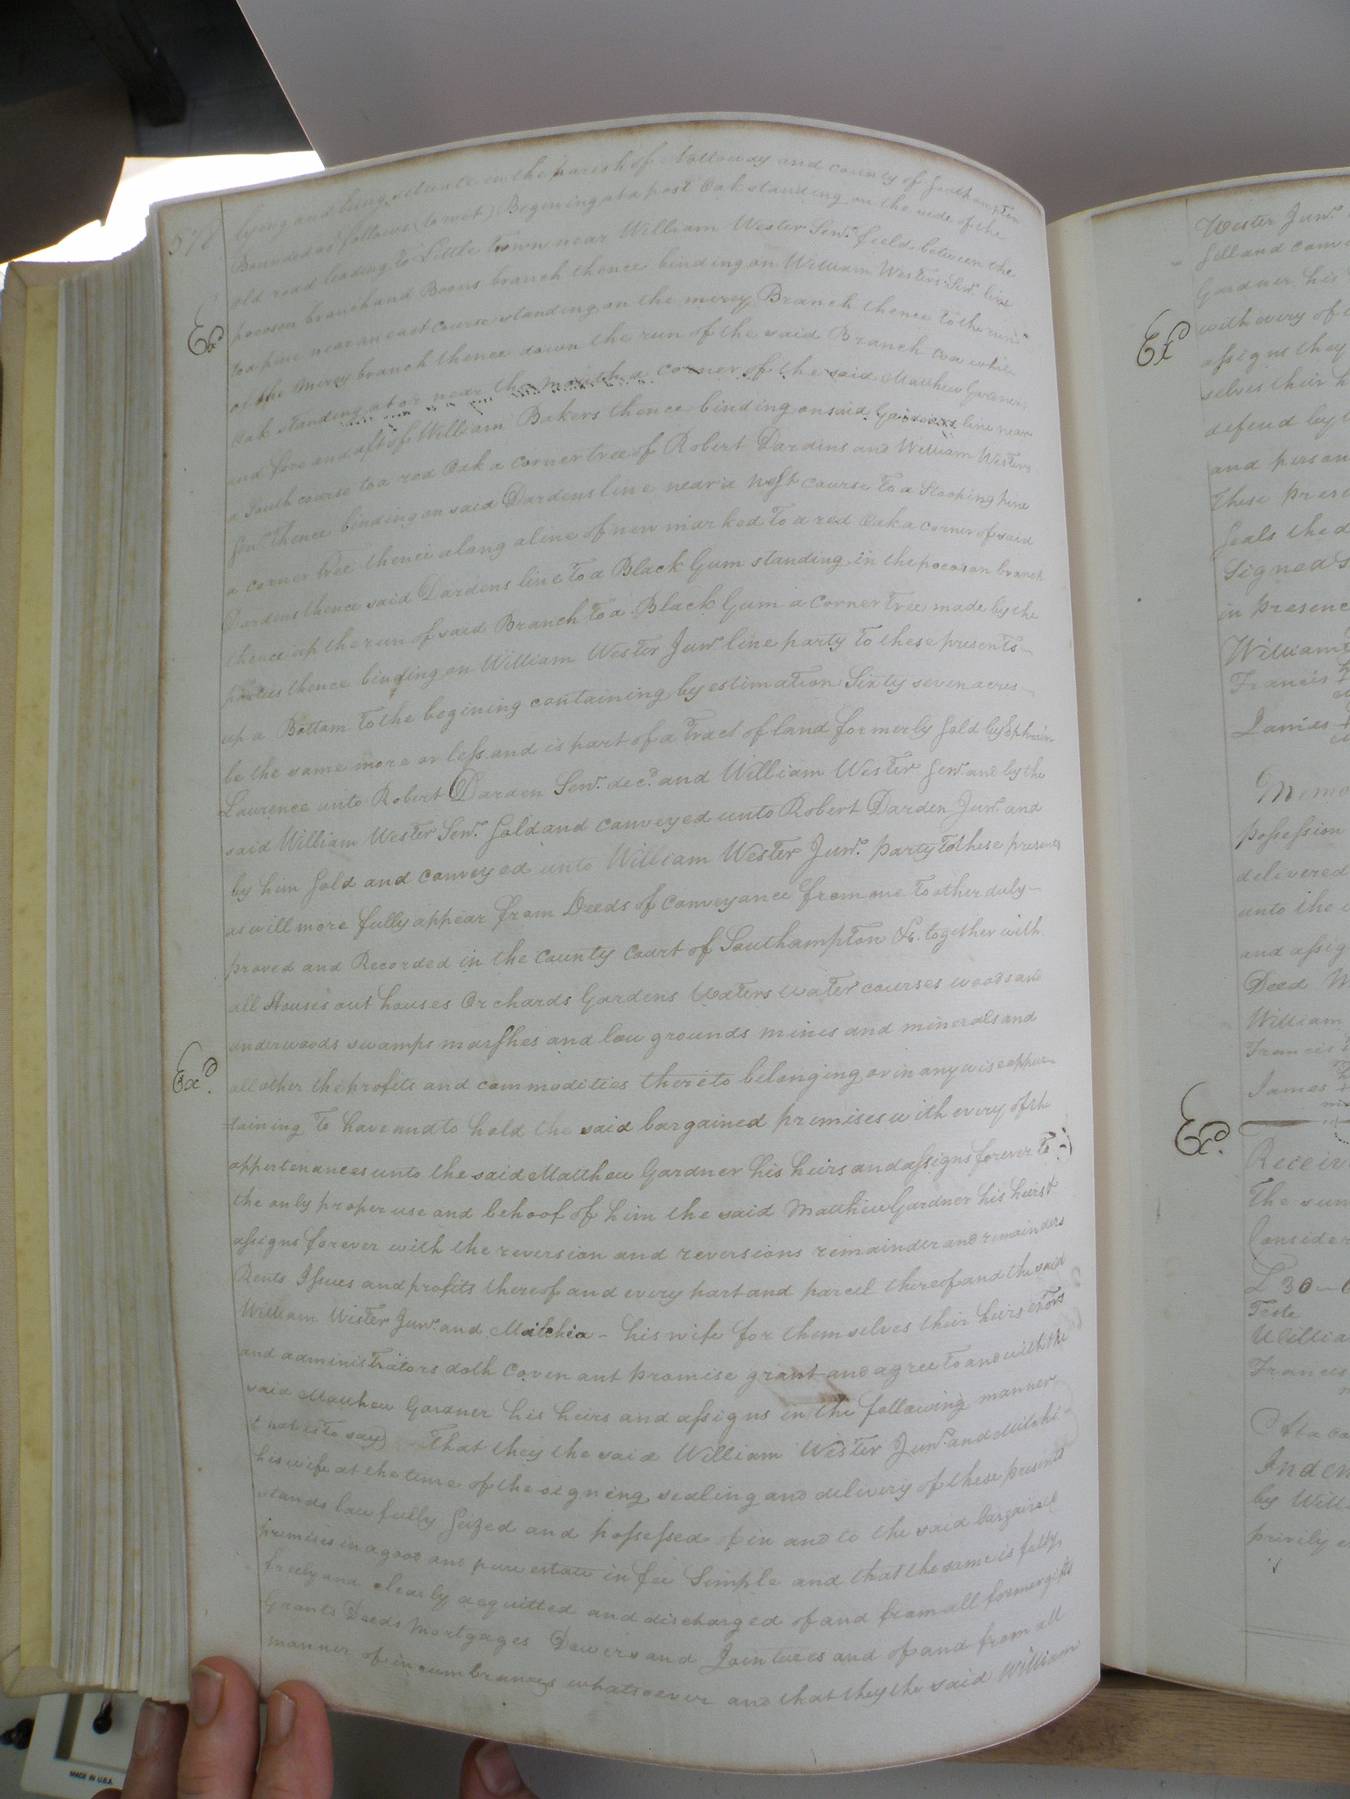 lying and being situate in the parish of Nottoway and county of Southampton
Bounded as follows (to wit) Begining at a post Oak standing on the side of the
old road leading to Little Town near William Wester Senr. field between the
pocoson branch and Boons branch thence binding on William Westers Senr. line
to a pine near an east course standing on the mercy Branch thence to the run
of the mercy branch thence down the run of the said Branch to a white
Oak standing at or near the mouth a corner of the said Matthew Gardner
and of William Bakers thence binding on said Gardners line near
a South course to a red Oak a corner tree of Robert Dardens and William Westers
Senr. thence binding on said Dardens line near a West course to a Stooping pine
a corner tree thence along a line of new marked to a red Oak a corner of said
Dardens thence said Dardens line to a Black Gum standing in the pocoson branch
thence up the run of said Branch to a Black Gum a Corner Tree made by the
parties thence binding on William Wester Junr line party to these presents
up a Bottam to the begining containing by estimation Sixty seven acres
be the same more or less and is part of a Tract of land formerly Sold by Ephraim
Laurence unto Robert Darden Senr. decd. and William Wester Senr. and by the
said William Wester Senr. Sold and conveyed unto Robert Darden Junr. and
by him Sold and conveyed unto William Wester Junr. party to these presents
as will more fully appear from Deeds of conveyance from one to other duly
proved and Recorded in the county court of Southampton &c. together with
all Houses out houses Orchards Gardens Waters water courses woods and
underwoods swamps marshes and low grounds mines and minerals and
Exd.
all other the profits and commodities thereto belonging or in any wise apper
taining To have and to hold the said bargained premises with every of the
appertenances unto the said Matthew Gardner his heirs and assigns forever To
the only proper use and behoof of him the said Matthew Gardner his heirs &
assigns forever with the reversion and reversions remainder and remainders
Rents Issues and profits thereof and every part and parcel thereof and the said
William Wester Junr and Milchia - his wife for themselves their heirs exors
and administrators doth covenant promise grant and agree to and with the
said Matthew Gardner his heirs and assigns in the following manner
(that is to say) That they the said William Wester Junr and
his wife at the time of the signing sealing and delivery of these presents
stands lawfully Seized and possessed of in and to the said bargained
premises in a good and pure estate in fee Simple and that the same is fully
freely and clearly acquitted and discharged of and from all former gifts
Grants Deeds Mortgages Dowers and Jointures and of and from all
manner of incumbrances whatsoever and that they the said William
Wester Junr.
Sell and
Gardner his
with every of
assigns they
selves their
defend by
and
These
Seals the
Signed
in presence
William
Francis
James
delivered
unto the
Deed
William
Francis
James
Exd.
The sum
£ 30
Teste
Francis
At a
by
MADE IN U.S.A.